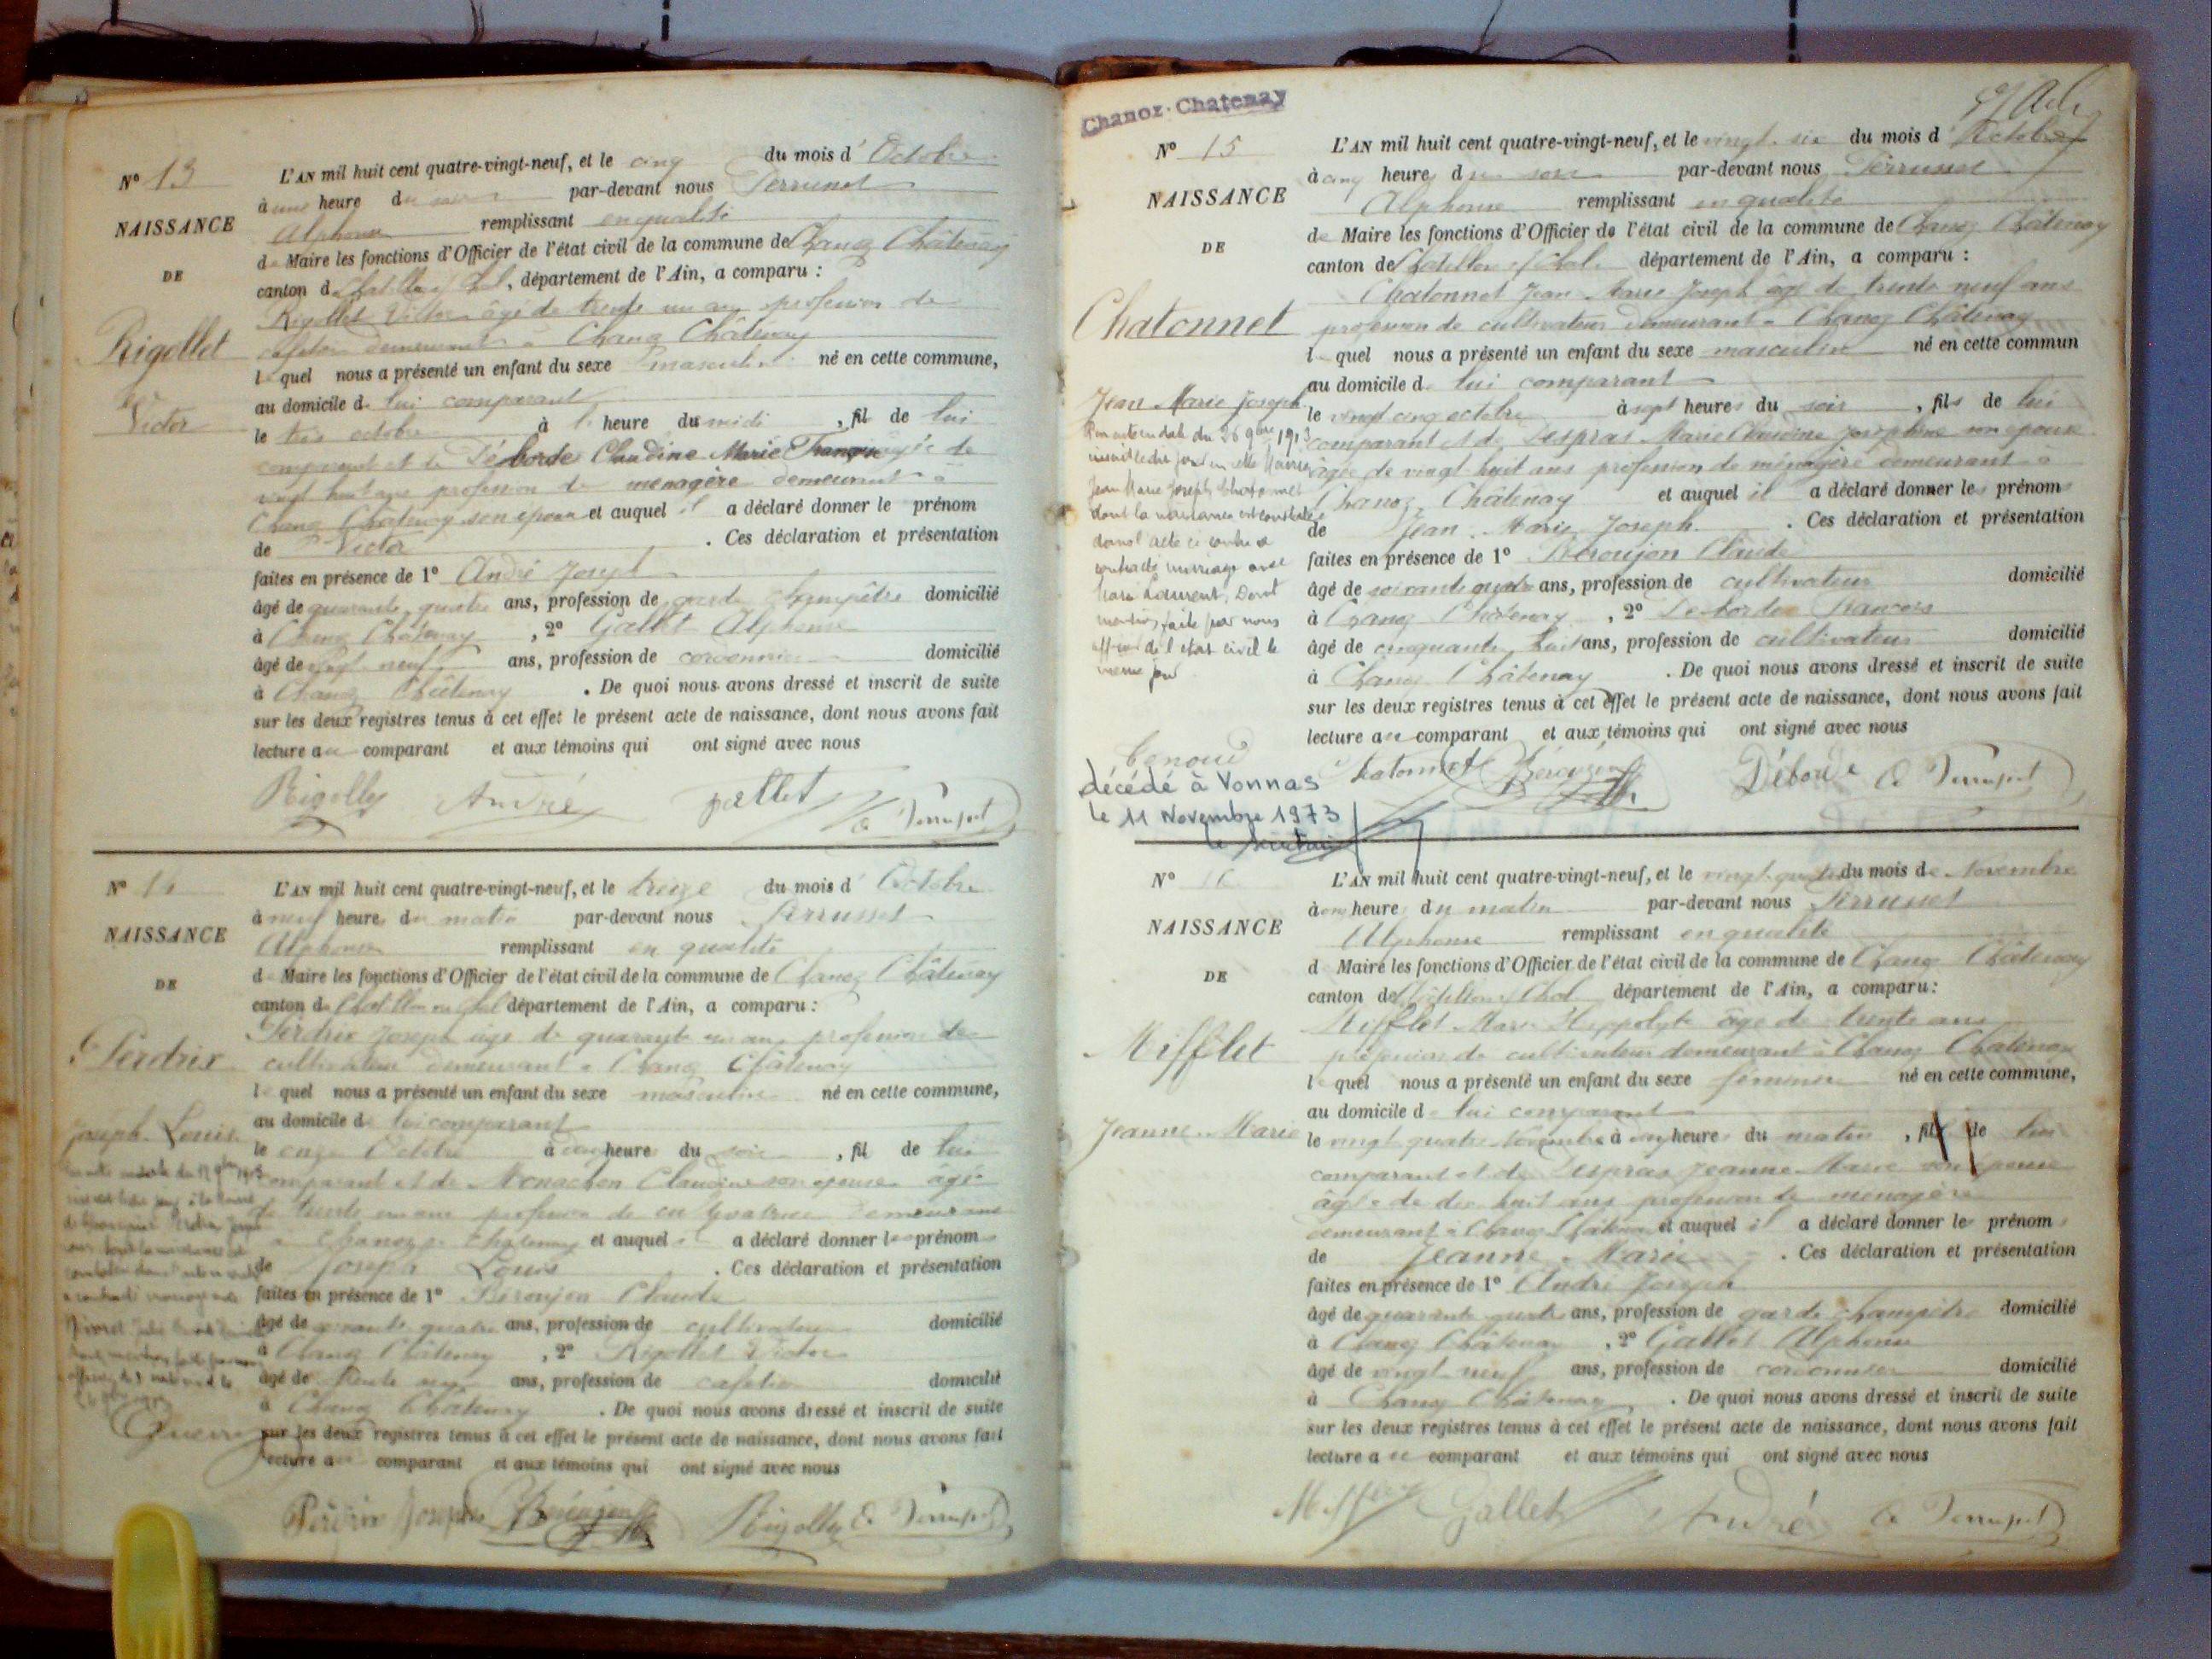 Nº 13
NAISSANCE
DE
Rigollet
Victor
L'AN mil huit cent quatre-vingt-neuf, et le cinq du mois d'Octobre
à une heure du soir par-devant nous Perrusset
Alphonse remplissant en qualité
de Maire les fonctions d'Officier de l'état civil de la commune de Chanoz Châtenay
canton de Chatillon s/ Chal., département de l'Ain, a comparu :
Rigollet Victor âgé de trente un ans profession de
cafetier demeurant à Chanoz Châtenay
lequel nous a présenté un enfant du sexe masculin né en cette commune,
au domicile de lui comparant
le trois octobre à heure du midi, fil de lui
comparant et de Déborde Claudine Marie Françoise âgée de
vingt huit ans profession de ménagère demeurant à
Chanoz Châtenay son épouse et auquel il a déclaré donner le prénom
de Victor. Ces déclaration et présentation
faites en présence de 1º André Joseph
âgé de quarante quatre ans, profession de garde champêtre domicilié
à Chanoz Châtenay, 2º Gallet Alphonse
âgé de vingt neuf ans, profession de cordonnier domicilié
à Chanoz Châtenay. De quoi nous avons dressé et inscrit de suite
sur les deux registres tenus à cet effet le présent acte de naissance, dont nous avons fait
lecture au comparant et aux témoins qui ont signé avec nous
Rigollet André gallet A Perrusset
Nº 14
NAISSANCE
DE
Perdrix
Joseph Louis
L'AN mil huit cent quatre-vingt-neuf, et le treize du mois d'Octobre
à neuf heures du matin par-devant nous Perrusset
Alphonse remplissant en qualité
de Maire les fonctions d'Officier de l'état civil de la commune de Chanoz Châtenay
canton de Chatillon sur Chal département de l'Ain, a comparu :
Perdrix Joseph âgé de quarante un ans, profession de
cultivateur demeurant à Chanoz Châtenay
lequel nous a présenté un enfant du sexe masculin né en cette commune,
au domicile de lui comparant
le onze Octobre à heure du soir, fil de lui
comparant et de Monachon Claudine son épouse âgée
de trente un ans profession de cultivatrice demeurant
à Chanoz Châtenay et auquel il a déclaré donner les prénoms
de Joseph Louis. Ces déclaration et présentation
faites en présence de 1º Béroujon Claude
âgé de soixante quatre ans, profession de cultivateur domicilié
à Chanoz Châtenay, 2º Rigollet Victor
âgé de trente un ans, profession de cafetier domicilié
à Chanoz Châtenay. De quoi nous avons dressé et inscrit de suite
sur les deux registres tenus à cet effet le présent acte de naissance, dont nous avons fait
lecture au comparant et aux témoins qui ont signé avec nous
Perdrix Joseph Béroujon Rigollet A Perrusset
Chanoz-Chatenay
Nº 15
NAISSANCE
DE
Chatonnet
Jean Marie Joseph
Par acte en date du 26 9bre 1913
inscrit le dit jour en cette Mairie
Jean Marie Joseph Chatonnet
dont la naissance est constatée
dans l'acte ci contre a
contracté mariage avec
Laurent. Dont
mention faite par nous
officier de l'état civil le
même jour
Benoud
décédé à Vonnas
le 11 Novembre 1973
L'AN mil huit cent quatre-vingt-neuf, et le vingt-six du mois d'Octobre
à cinq heures du soir par-devant nous Perrusset
Alphonse remplissant en qualité
de Maire les fonctions d'Officier de l'état civil de la commune de Chanoz Châtenay
canton de Chatillon s/ Chal. département de l'Ain, a comparu :
Chatonnet Jean Marie Joseph âgé de trente neuf ans
profession de cultivateur demeurant à Chanoz Châtenay
lequel nous a présenté un enfant du sexe masculin né en cette commun
au domicile de lui comparant
le vingt cinq octobre à sept heures du soir, fils de lui
comparant et de Despras Marie Claudine Joséphine son épouse
âgée de vingt huit ans profession de ménagère demeurant à
Chanoz Châtenay et auquel il a déclaré donner les prénoms
de Jean Marie Joseph. Ces déclaration et présentation
faites en présence de 1º Béroujon Claude
âgé de soixante quatre ans, profession de cultivateur domicilié
à Chanoz Châtenay, 2º Déborde François
âgé de cinquante huit ans, profession de cultivateur domicilié
à Chanoz Châtenay. De quoi nous avons dressé et inscrit de suite
sur les deux registres tenus à cet effet le présent acte de naissance, dont nous avons fait
lecture au comparant et aux témoins qui ont signé avec nous
Chatonnet Béroujon Déborde A Perrusset
Nº 16
NAISSANCE
DE
Mifflet
Jeanne-Marie
L'AN mil huit cent quatre-vingt-neuf, et le vingt-quatre du mois de Novembre
à onze heures du matin par-devant nous Perrusset
Alphonse remplissant en qualité
d Maire les fonctions d'Officier de l'état civil de la commune de Chanoz Châtenay
canton de Châtillon s/ Chal département de l'Ain, a comparu :
Mifflet Marie Hippolyte âgé de trente ans
profession de cultivateur demeurant à Chanoz Châtenay
lequel nous a présenté un enfant du sexe féminin né en cette commune,
au domicile de lui comparant
le vingt quatre Novembre à heures du matin, fil de lui
comparant et de Despras Jeanne Marie son épouse
âgée de dix huit ans profession de ménagère
demeurant à Chanoz Châtenay et auquel il a déclaré donner les prénoms
de Jeanne-Marie. Ces déclaration et présentation
faites en présence de 1º André Joseph
âgé de quarante quatre ans, profession de garde champêtre domicilié
à Chanoz Châtenay, 2º Gallet Alphonse
âgé de vingt neuf ans, profession de cordonnier domicilié
à Chanoz Châtenay. De quoi nous avons dressé et inscrit de suite
sur les deux registres tenus à cet effet le présent acte de naissance, dont nous avons fait
lecture au comparant et aux témoins qui ont signé avec nous
Mifflet Gallet André A Perrusset